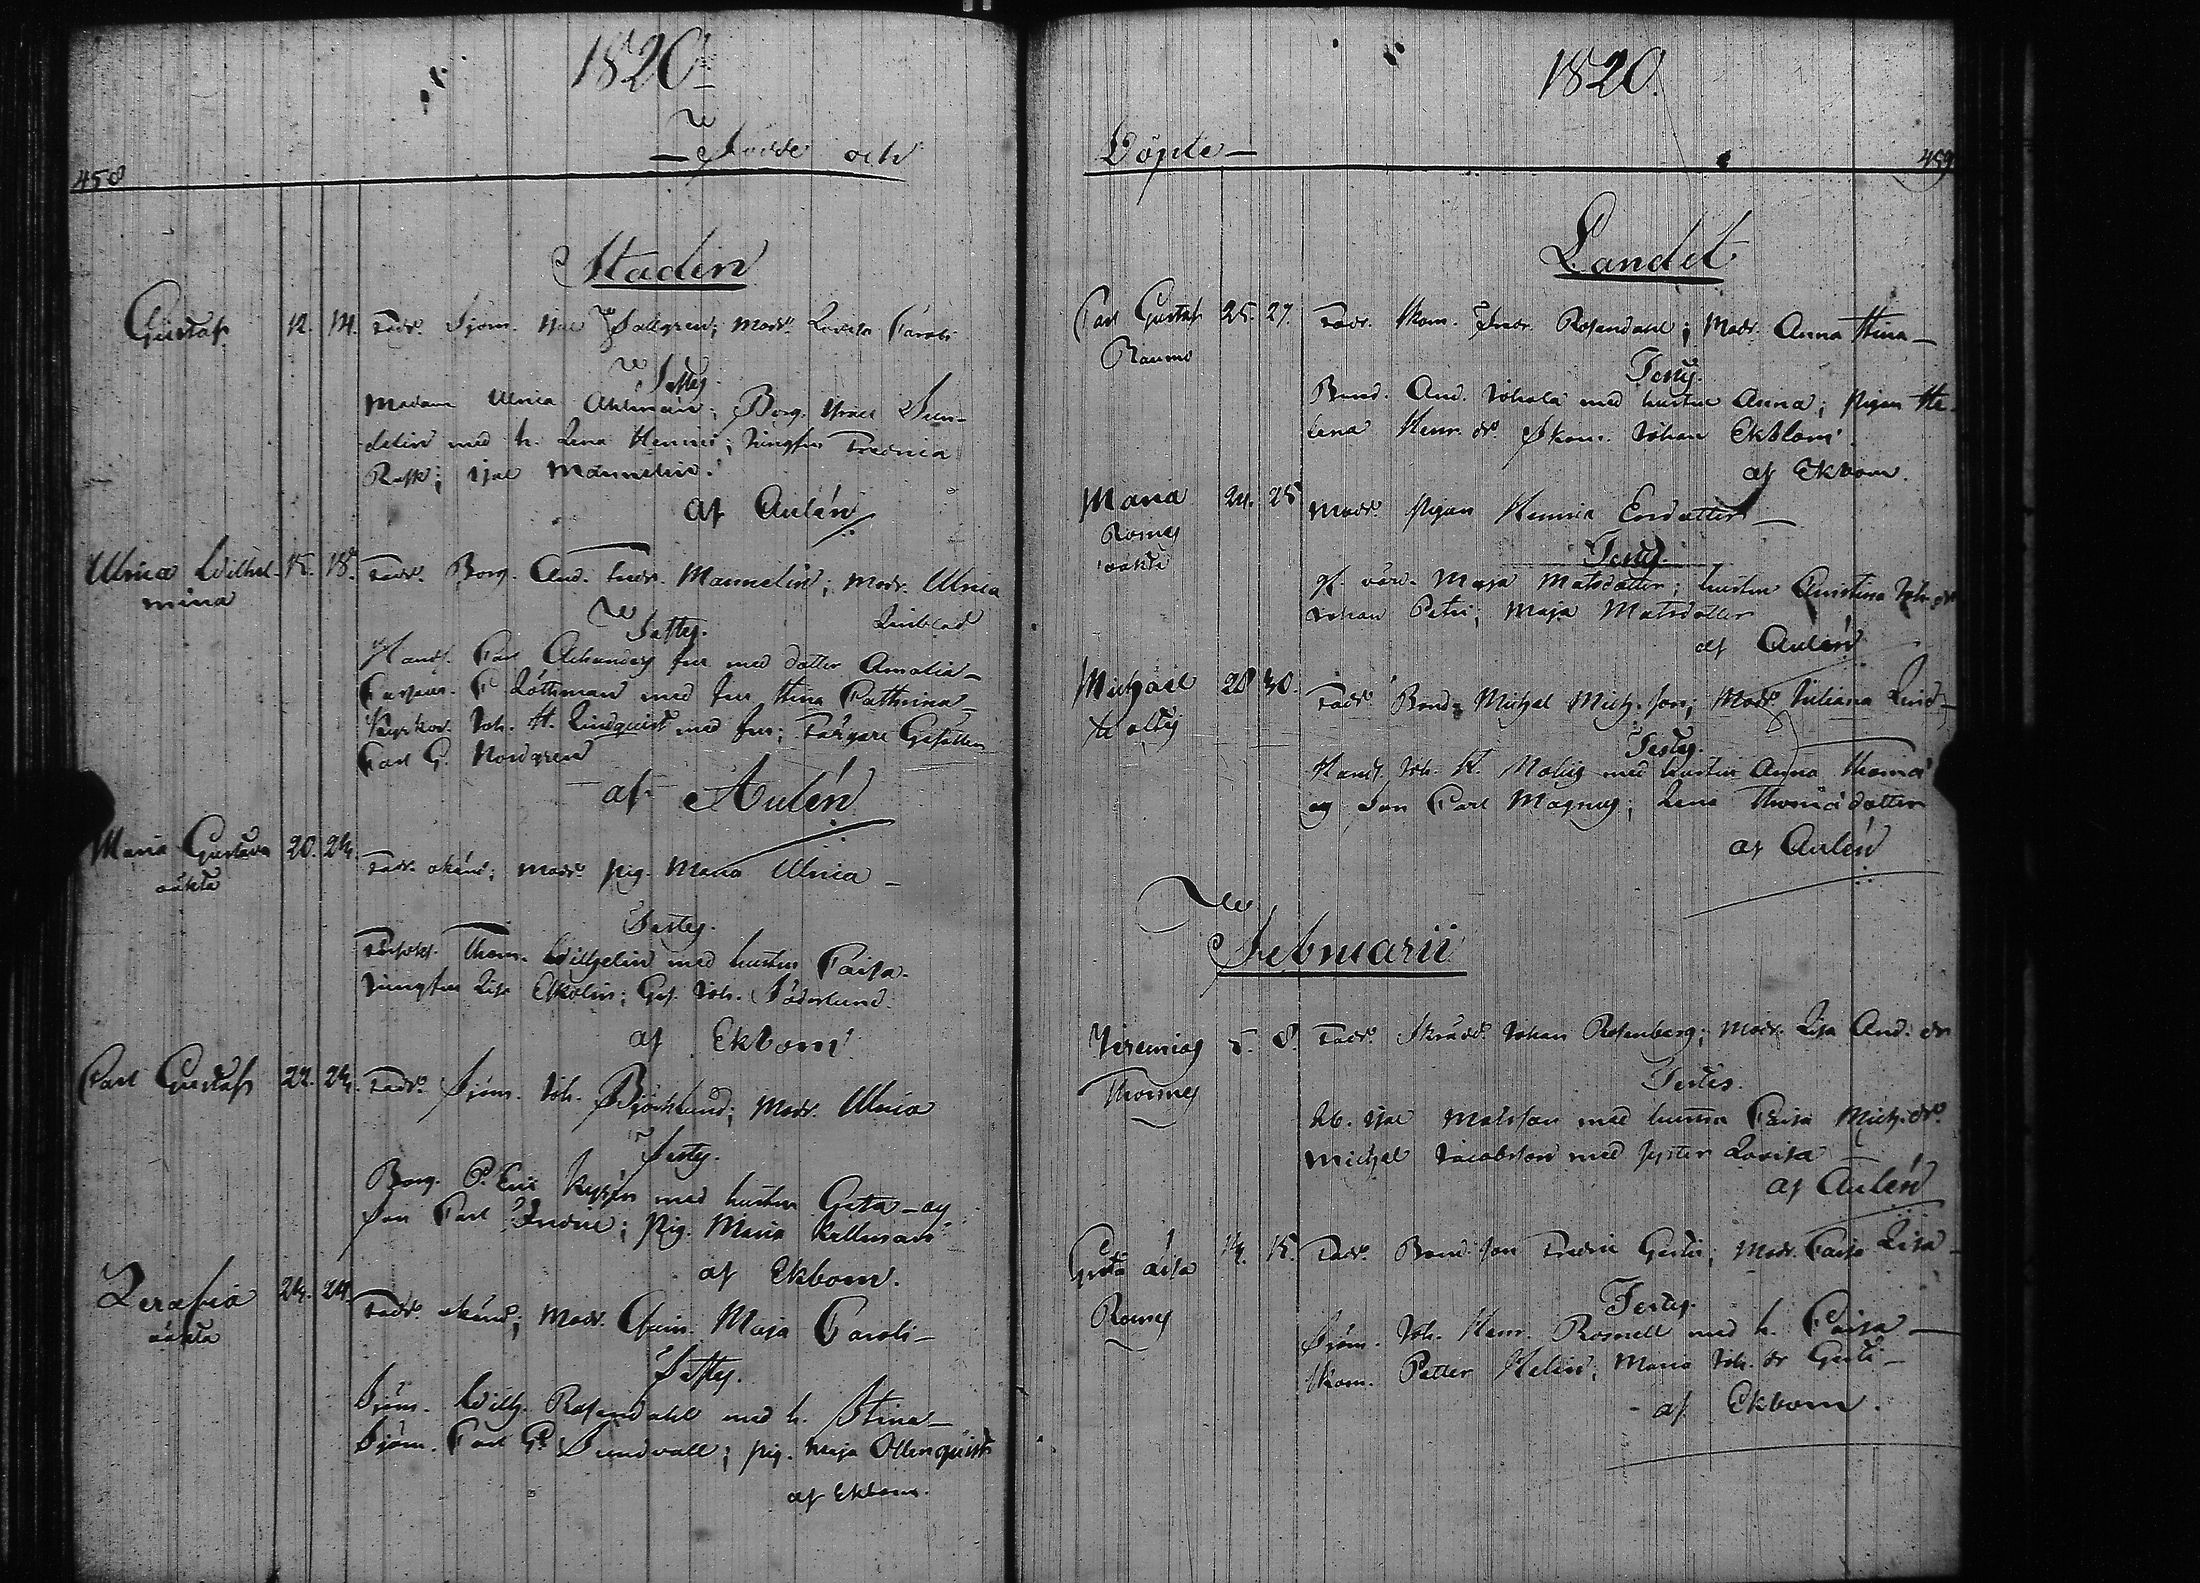 1820
Födde och
458
Staden
Gustaf 12. 14. Fadr. Sjöm. Isac Sallgren; Modr. Lovisa Caroli
Testes.
Madam Ulrica Ahlman; Borg. Israel Sun-
delin med h. Lena Henric; Jungfru Fredrica
Rask; Isac Mannelin.
af Aulén
Ulrica Wilhel- 15. 18. Fadr. Borg. And. Fredr. Mannelin; Modr. Ulrica
mina
Linblad
Testes.
Handl. Carl Ackander fru med dotter Amalia
C. Löthman med fru Stina Cathrina
Joh. H. Lindquist med fru; Färgare Gesällen
Carl G. Nordgren
af Aulén
Maria Gustava 20. 24. Fadr. okänd; Modr. pig. Maria Ulrica
oäkta
Testes.
Thom. Wilhelin med hustru Caisa
Jungfru Lisa Ekolin; Ges. Joh. Söderlund
af Ekbom
Carl Gustaf 22. 24. Fadr. Sjöm. Joh. Björklund; Modr. Ulrica
Testes.
Borg. P. Eric med hustru Greta og
son Carl Fredric; Pig. Maria Kellman
af Ekbom.
Serafia 24. 24. Fadr. okänd; Modr. Maja Caroli
oäkta
Testes.
Sjöm. Wilh. Rosendahl med h. Stina
Sjöm. Carl G. Sundvall; pig. Maja Ollonquist
af Ekbom.
1820.
Döpte
459
Landet
Carl Gustaf 25. 27. Fadr. Skom. Fredr. Rosendahl; Modr. Anna Stina
Raumo
Testes.
Bond. And. Johola med hustru Anna; Pigan He-
lena Henr. dr. Skom. Johan Ekblom
af Ekbom.
Maria 24. 25 Modr. Pigan Henrica Ersdotter
oäkta
Testes.
Maja Matsdotter; hustru Christina Joh. dr
Johan Petri; Maja Matsdotter
af Aulén
Michael 28 30. Fadr. Bond. Michel Mich. son; Modr. Juliana Lind
Testes.
Handl. Joh. H. med hustru Anna Thomæ
og son Carl Magnus; Lena Thomædotter
af Aulén
Februarii
Jeremias 5. 8. Fadr. Skrädd. Johan Rosenberg; Modr. Lisa And. dr
Testes.
Isac Matsson med hustru Caisa Mich. dr.
Michel Jacobsson med syster Lovisa
af Aulén
Greta Lisa 14. 15. Fadr. Bond. son Fredric Gerti; Modr. Caisa Lisa
Testes.
Sjöm. Joh. Henr. Rosnell med h. Caisa
Skom. Petter Helin; Maria Joh. dr Gerti
af Ekbom.